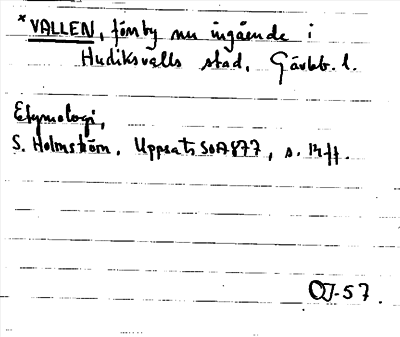 * VALLEN, förnby nu ingående i
Hudiksvalls stad, Gävleb. l.
Etymologi,
S. Holmström, Uppsats SOA 877, s. 14 ff.
OJ-57.